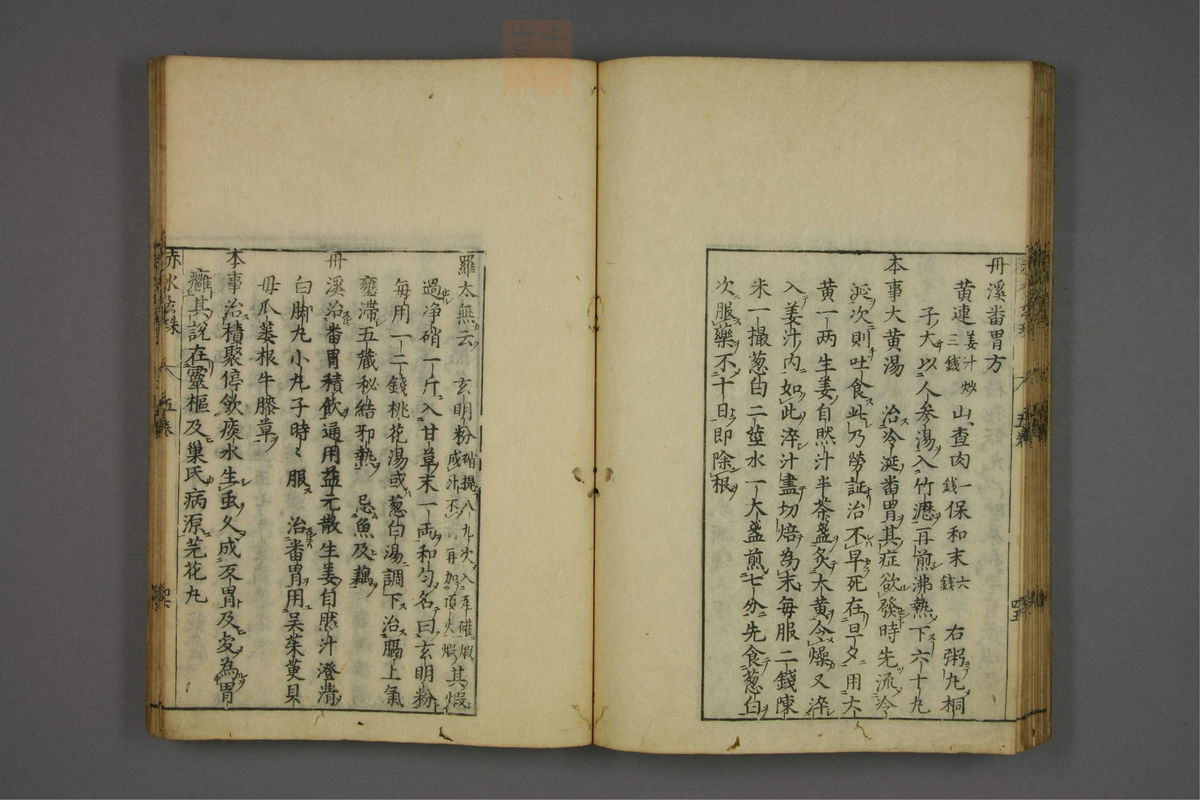 丹溪畨胃方
黄連姜汁炒三錢山查肉一錢保和末六錢 右粥丸桐
子大以人參湯入竹瀝再煎沸熱下六十丸
本事大黄湯 治冷涎畨胃其症欲發時先流冷
涎次則吐食此乃勞証治不早死在旦夕用大
黄一两生姜自然汁半茶盞炙大黄令燥又淬
入姜汁内如此淬汁盡切焙為末每服二錢陳
米一撮葱白二莖水一大盞煎七分先食葱白
次服藥不十日即除根
羅太無云 玄明粉
過净硝一斤入甘草末一両和匀名曰玄明粉
每用一二錢桃花湯或葱白湯調下治膈上氣
壅滯五藏秘結邪熱 忌魚及藕
丹溪治畨胃積飲通用益元散生姜自然汁澄清
白脚丸小丸子時々服 治畨胃用吴茱萸貝
母瓜蒌根牛膝草
本事治積聚停飲痰水生虫久成反胃及変為胃
癰其説在靈樞及巢氏病源芫花丸
赤水玄珠 五卷